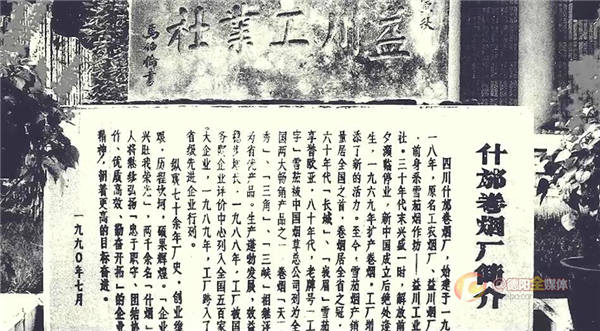 益川工業社
書
什邡卷烟厂简介
四川什邡卷烟厂,始建于一九
一八年,原名工农烟厂、益川烟厂,
前身系雪茄烟作坊——益川工业
社。三十年代末兴盛一时,解放前
夕濒临停业,新中国成立后绝处逢
生,一九六九年扩产卷烟,工厂
添了新的活力。至今,雪茄烟产销
量居全国之首,卷烟居全省之冠,
六十年代「长城」、「峨眉」雪茄
享誉欧亚,八十年代,老牌号「工
字」雪茄被中国烟草总公司列为全
国两大畅销产品之一,卷烟「天
秀」、「三角」、「三峡」相继评
为省优产品。生产蓬勃发展,效益
稳步增长,一九八八年,工厂被国
务院企业评价中心列入全国五百家
大企业,一九八九年,工厂跨入了
省级先进企业行列。
纵观七十余年厂史,创业维
艰,历程坎坷,硕果辉煌。「企业
兴旺我荣光」,两千余名「什烟」
人将继续弘扬「忠于职守、团结协
作、优质高效、勤奋开拓」的企业
精神,朝着更高的目标奋进。
一九九〇年七月
德阳全媒体